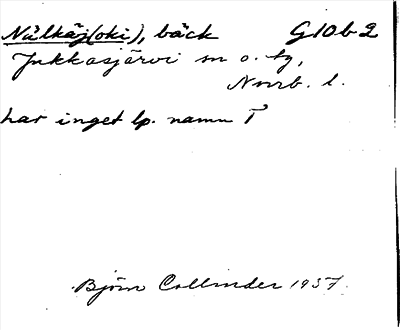 Nälkäj(oki), bäck G10b2
Jukkasjärvi sn o. tg,
Norrb. l.
har inget lp. namn T
Björn Collinder 1957.